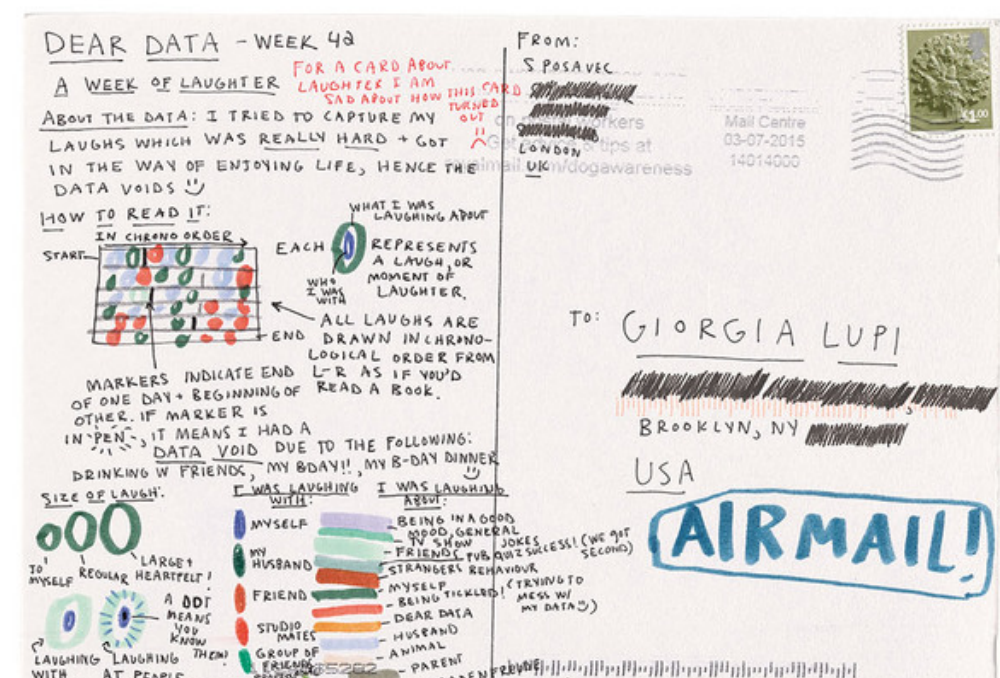 DEAR DATA - WEEK 42
A WEEK OF LAUGHTER
FOR A CARD ABOUT
LAUGHTER I AM
SAD ABOUT HOW THIS CARD
TURNED
OUT
ABOUT THE DATA: I TRIED TO CAPTURE MY
LAUGHS WHICH WAS REALLY HARD + GOT
IN THE WAY OF ENJOYING LIFE, HENCE THE
DATA VOIDS
HOW TO READ IT:
IN CHRONO ORDER
START
END
WHAT I WAS
LAUGHING ABOUT
EACH
REPRESENTS
A LAUGH, OR
MOMENT OF
LAUGHTER.
WHO
I WAS
WITH
ALL LAUGHS ARE
DRAWN IN CHRONO-
LOGICAL ORDER FROM
L-R AS IF YOU'D
READ A BOOK.
MARKERS INDICATE END
OF ONE DAY + BEGINNING OF
OTHER. IF MARKER IS
IN "PEN", IT MEANS I HAD A
DATA VOID DUE TO THE FOLLOWING:
DRINKING W FRIENDS, MY BDAY!!, MY B-DAY DINNER
SIZE OF LAUGH:
TO
MYSELF
REGULAR
LARGE +
HEARTFELT!
A DOT
MEANS
YOU
KNOW
THEM!
LAUGHING
WITH
LAUGHING
AT PEOPLE
I WAS LAUGHING
WITH:
MYSELF
MY
HUSBAND
FRIEND
STUDIO
MATES
GROUP OF
FRIENDS
I WAS LAUGHING
ABOUT:
BEING IN A GOOD
MOOD, GENERAL
TV SHOW JOKES
FRIENDS PUB QUIZ SUCCESS! (WE GOT
SECOND)
STRANGERS BEHAVIOUR
MYSELF
BEING TICKLED! (TRYING TO
MESS W/
MY DATA)
DEAR DATA
HUSBAND
ANIMAL
PARENT
FROM:
S POSAVEC
LONDON
UK
workers
Get & tips at
/dogawareness
Mail Centre
03-07-2015
14014000
£1.00
TO: GIORGIA LUPI
BROOKLYN, NY
USA
AIRMAIL!